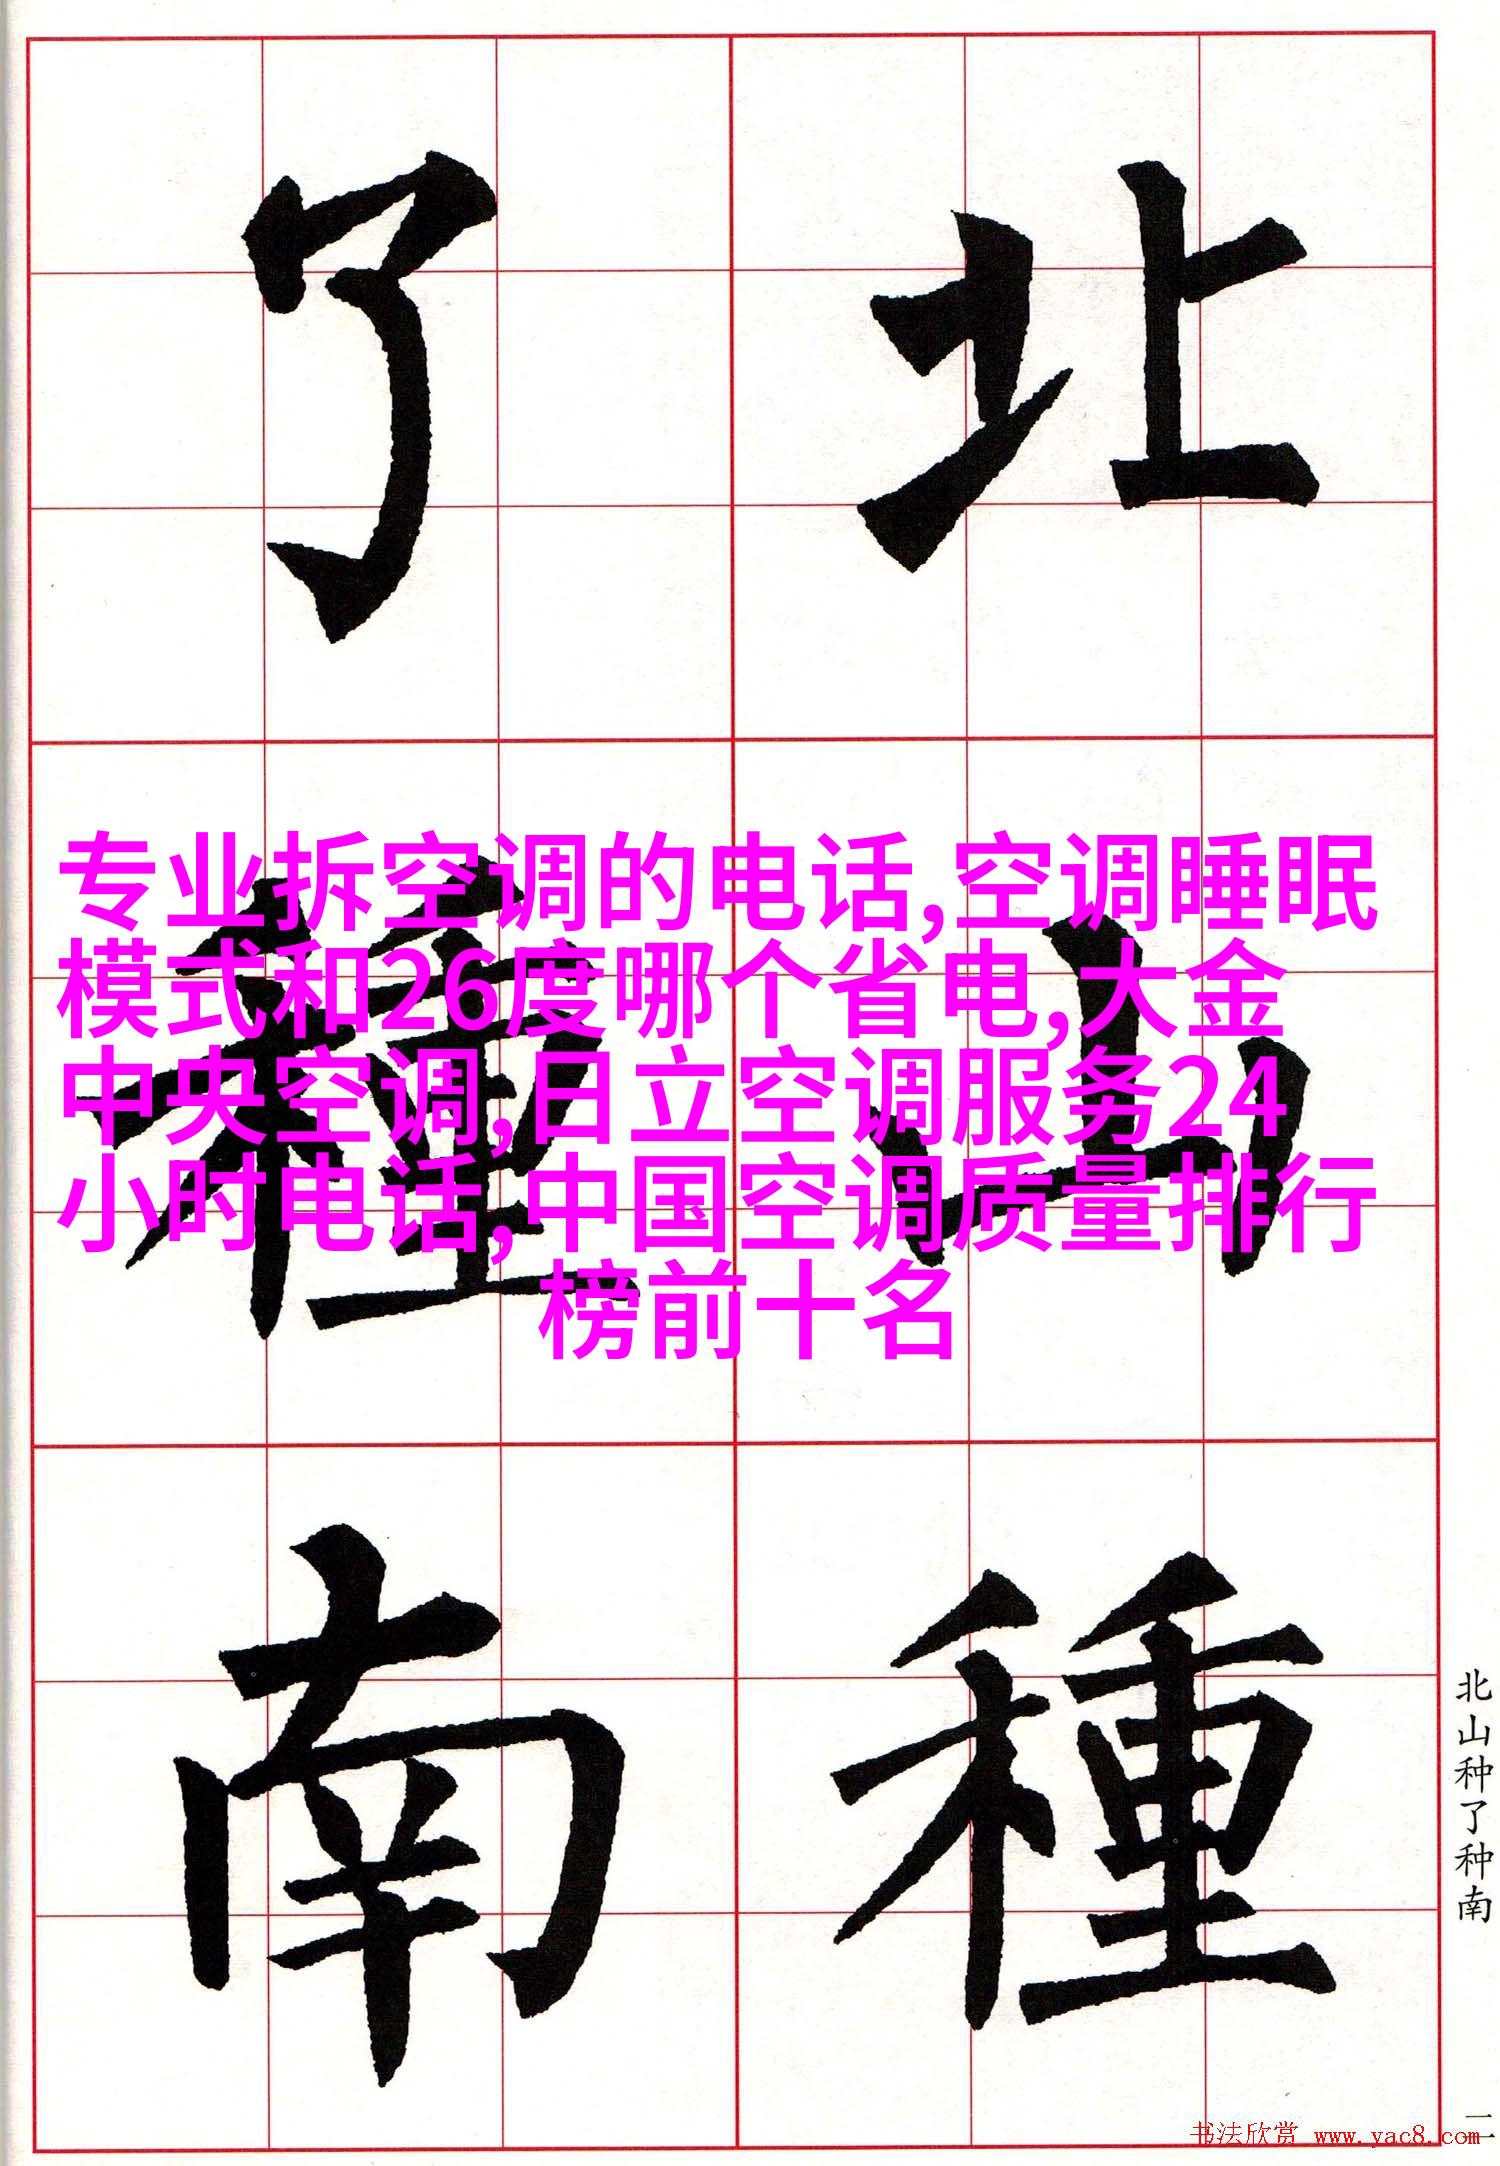 北山種
了種南
专业拆空调的电话,空调睡眠
模式和26度哪个省电,大金
中央空调,日立空调服务24
小时电话,中国空调质量排行
榜前十名
北山种了种南
二
书法欣赏 www.yac8.com